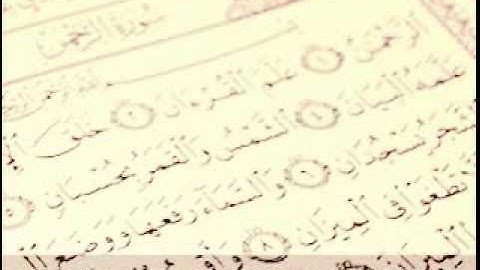 سُورَةُ الرَّحْمَٰن
الرَّحْمَٰنُ ١ عَلَّمَ الْقُرْءَانَ ٢ خَلَقَ
عَلَّمَهُ الْبَيَانَ ٤ الشَّمْسُ وَالْقَمَرُ بِحُسْبَانٍ ٥
لشَّجَرُ يَسْجُدَانِ ٦ وَالسَّمَآءَ رَفَعَهَا وَوَضَعَ
تَطْغَوْا۟ فِى الْمِيزَانِ ٨
الْمِيزَانَ